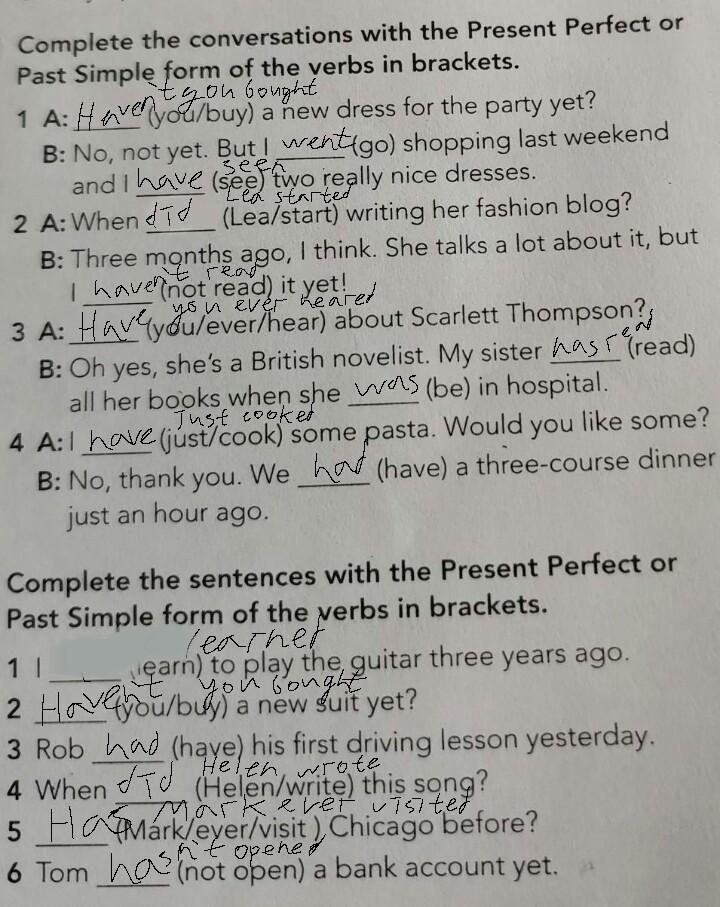 Complete the conversations with the Present Perfect or
Past Simple form of the verbs in brackets.
't you bought
1 A: Haven (you/buy) a new dress for the party yet?
B: No, not yet. But I went (go) shopping last weekend
seen
and I have (see) two really nice dresses.
Lea started
2 A: When did (Lea/start) writing her fashion blog?
B: Three months ago, I think. She talks a lot about it, but
't read
I haven (not read) it yet!
you ever heared
3 A: Have (you/ever/hear) about Scarlett Thompson?
B: Oh yes, she's a British novelist. My sister has read (read)
all her books when she was (be) in hospital.
Just cooked
4 A: I have (just/cook) some pasta. Would you like some?
B: No, thank you. We had (have) a three-course dinner
just an hour ago.
Complete the sentences with the Present Perfect or
Past Simple form of the verbs in brackets.
learned
1 I ____ learn) to play the guitar three years ago.
you bought
2 Haven't (you/buy) a new suit yet?
3 Rob had (have) his first driving lesson yesterday.
Helen wrote
4 When did (Helen/write) this song?
Mark ever visited
5 Has (Mark/ever/visit ) Chicago before?
n't opened
6 Tom has (not open) a bank account yet.